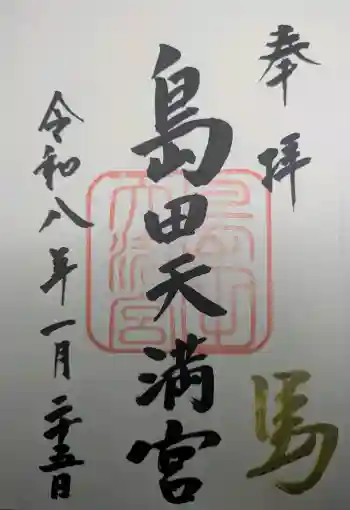 奉拝
馬
島田天満宮
令和八年一月二十五日